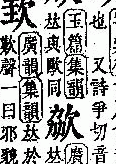 也又詩爭切音
玉篇集韻
𠀤與歐同
廣
於
廣韻集韻𠀤於
歎聲一曰邪貌